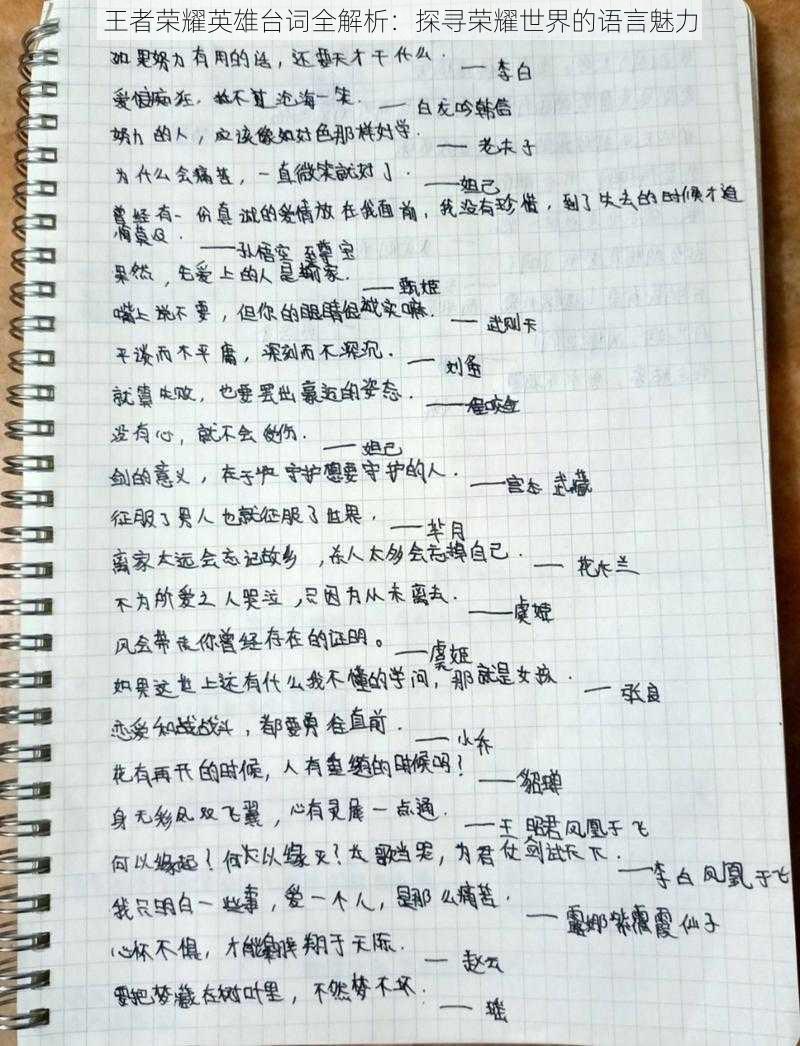 王者荣耀英雄台词全解析：探寻荣耀世界的语言魅力
如果努力有用的话，还要天才干什么. —李白
爱恨痴狂，抵不过沧海一笑. —白龙吟韩信
努力的人，应该像好色那样好学. —老夫子
为什么会痛苦，一直微笑就好了. —妲己
曾经有一份真诚的爱情放在我面前，我没有珍惜，到了失去的时候才追
悔莫及. —孙悟空 至尊宝
果然，先爱上的人是输家. —甄姬
嘴上说不要，但你的眼睛很诚实嘛. —武则天
平淡而不平庸，深刻而不深沉. —刘备
就算失败，也要摆出豪迈的姿态. —程咬金
没有心，就不会受伤. —妲己
剑的意义，在于守护想要守护的人. —宫本 武藏
征服了男人也就征服了世界. —芈月
离家太远会忘记故乡，杀人太多会忘掉自己. —花木兰
不为所爱之人哭泣，只因为从未离去. —虞姬
风会带走你曾经存在的证明。—虞姬
如果这世上还有什么我不懂的学问，那就是女孩. —张良
恋爱和战战斗，都要勇往直前. —小乔
花有再开的时候，人有重逢的时候吗？—貂蝉
身无彩凤双飞翼，心有灵犀一点通. —王昭君凤凰于飞
何以缘起？何以缘灭？长歌当哭，为君仗剑试天下. —李白凤凰于飞
我只明白一些事，爱一个人，是那么痛苦. —露娜紫霞仙子
心怀不惧，才能翱翔于天际. —赵云
要把梦藏在树叶里，不然梦不坏. —瑶